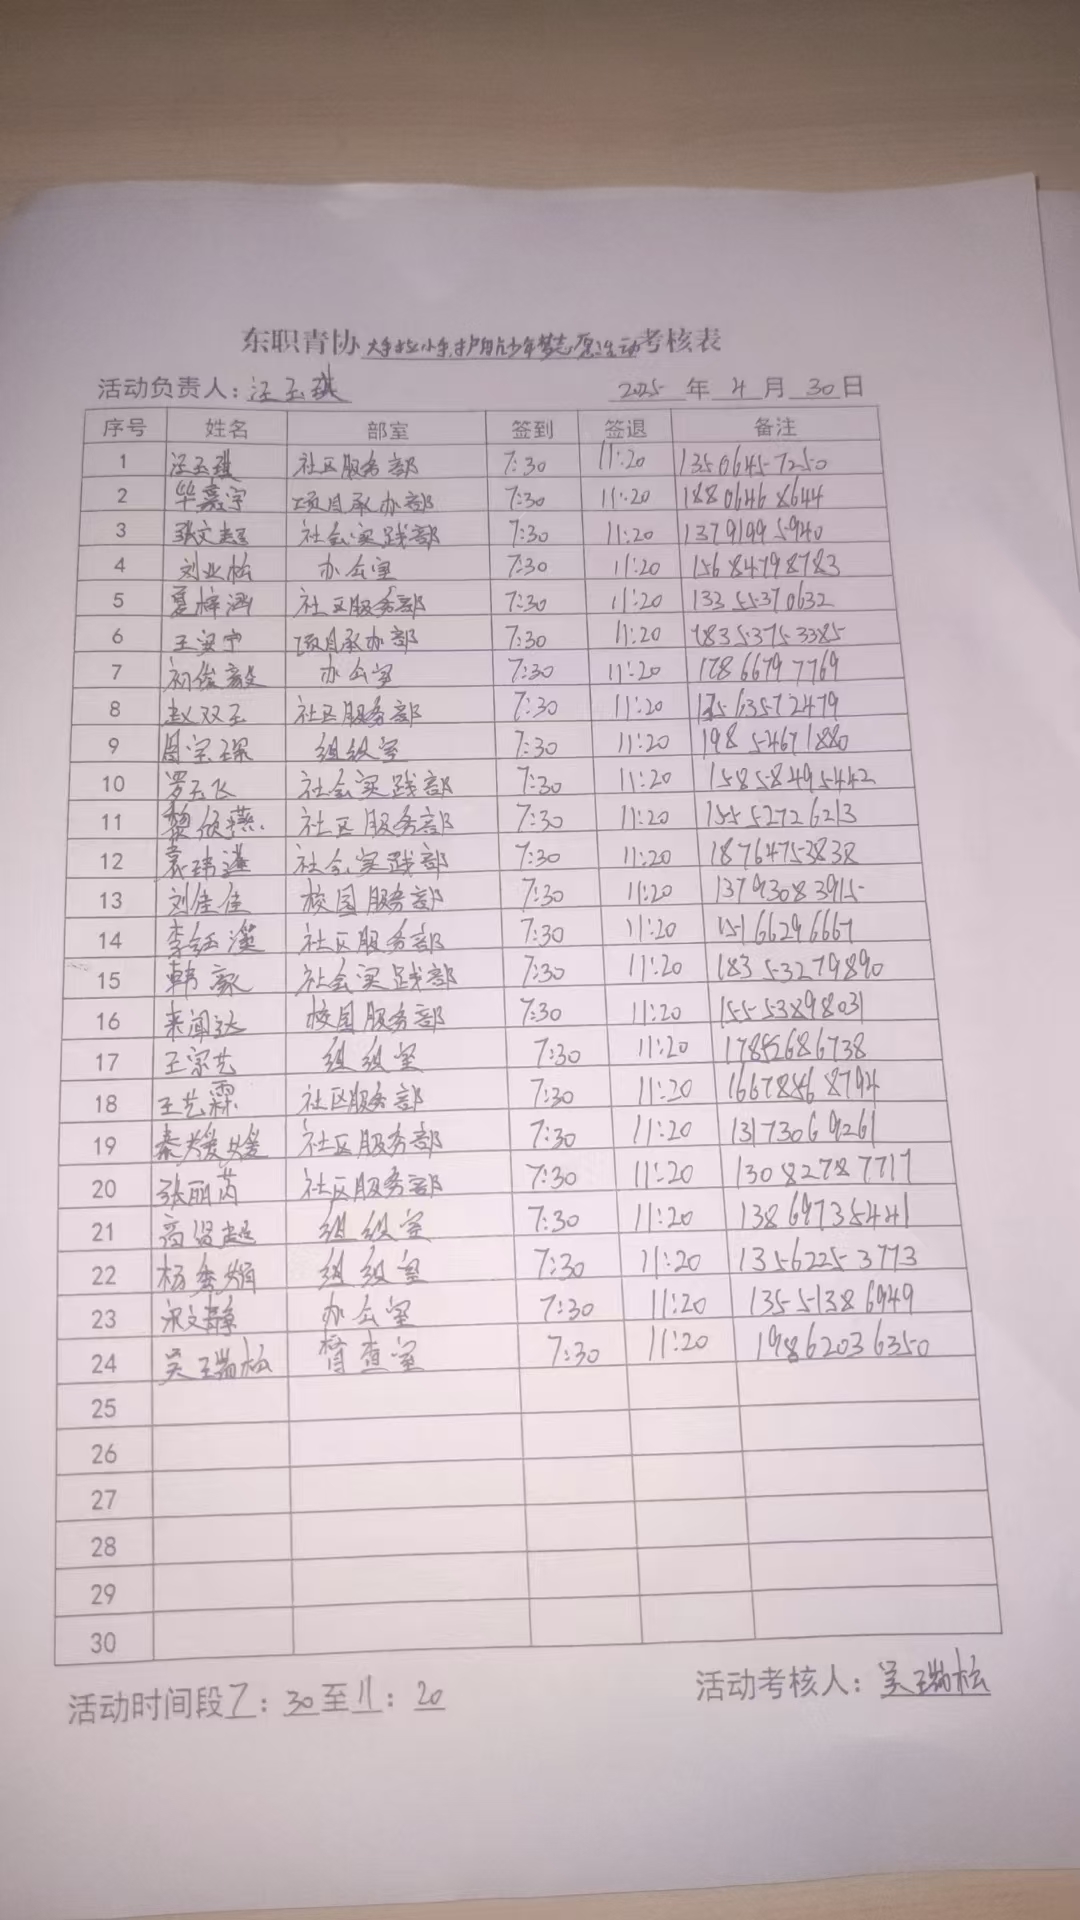 东职青协 护航少年梦志愿活动考核表
活动负责人：汪玉琪 2025 年 4 月 30 日
序号 姓名 部室 签到 签退 备注
1 汪玉琪 社区服务部 7:30 11:20 13506457250
2 毕嘉宇 项目承办部 7:30 11:20 18806468644
3 张文超 社会实践部 7:30 11:20 13791995940
4 刘业松 办公室 7:30 11:20 15684798783
5 夏梓涵 社区服务部 7:30 11:20 13355370632
6 王安宁 项目承办部 7:30 11:20 18353753385
7 初俊毅 办公室 7:30 11:20 17866797769
8 赵双玉 社区服务部 7:30 11:20
9 周宗琛 组织室 7:30 11:20 19854671880
10 罗玉飞 社会实践部 7:30 11:20 15858495442
11 黎欣燕 社区服务部 7:30 11:20 15552726213
12 袁玮遥 社会实践部 7:30 11:20 18764753838
13 刘佳佳 校园服务部 7:30 11:20 13793083915
14 李钰漢 社区服务部 7:30 11:20 15166296667
15 韩毅 社会实践部 7:30 11:20 18353279890
16 来闻达 校园服务部 7:30 11:20 15553898031
17 王宗艺 组织室 7:30 11:20 17852686738
18 王艺霖 社区服务部 7:30 11:20 16678568794
19 秦媛媛 社区服务部 7:30 11:20 13173069261
20 张丽芮 社区服务部 7:30 11:20 13082787717
21 高贤超 组织室 7:30 11:20 13869735441
22 杨秀娟 组织室 7:30 11:20 13562253773
23 宋文静 办公室 7:30 11:20 13551386949
24 吴瑞松 督查室 7:30 11:20 19862036350
25
26
27
28
29
30
活动时间段7：30至11：20 活动考核人：吴瑞松